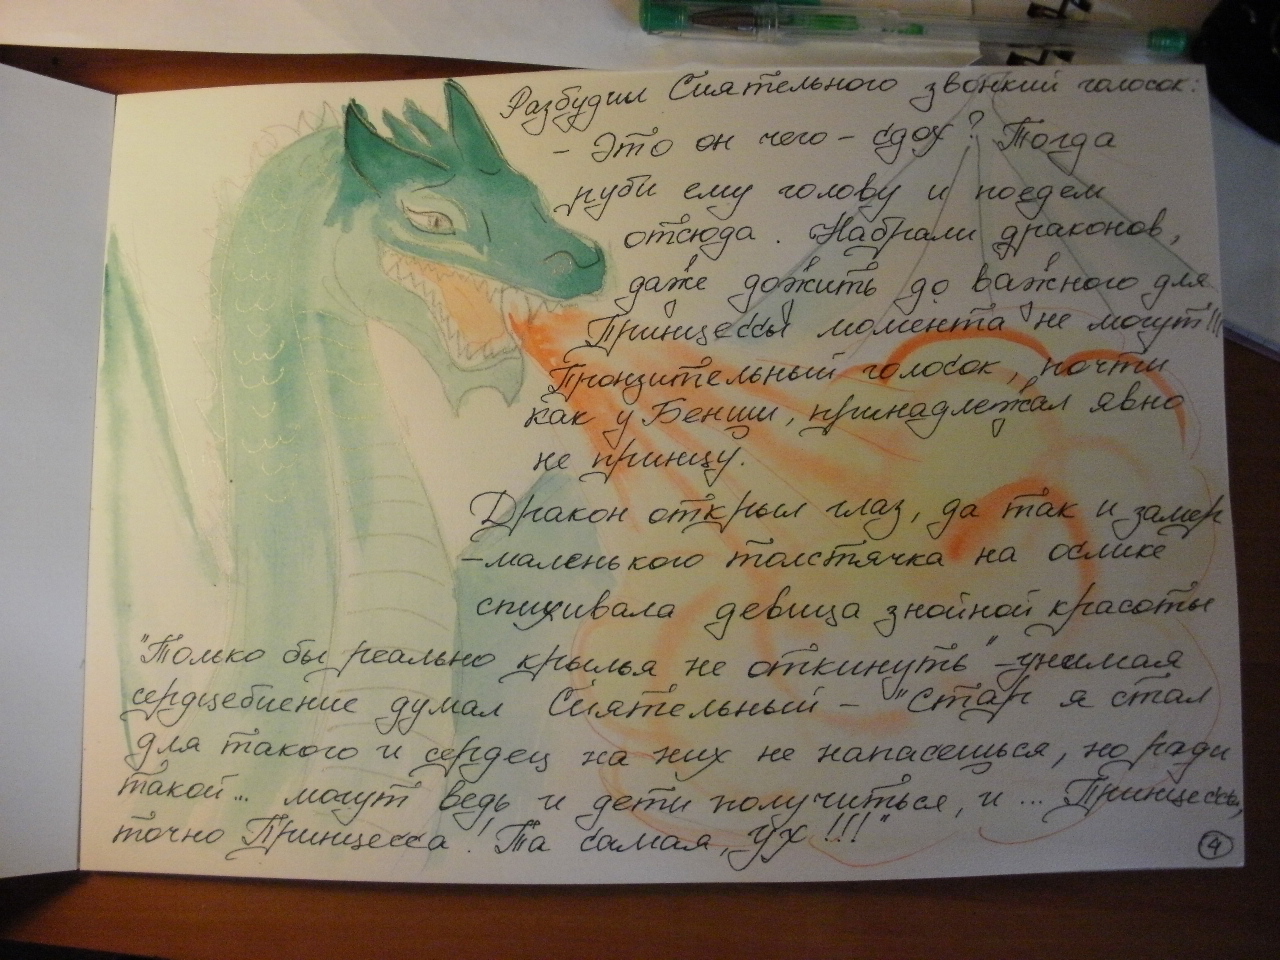 Разбудил Сиятельного звонкий голосок:
- Это он чего - сдох? Тогда
руби ему голову и поедем
отсюда. Набрали драконов,
даже дожить до важного для
Принцессы момента не могут!!!
Пронзительный голосок, почти
как у Бенши, принадлежал явно
не принцу.
Дракон открыл глаз, да так и замер
- маленького толстячка на ослике
спихивала девица знойной красоты
"Только бы реально крылья не откинуть" - унимая
сердцебиение думал Сиятельный - "Стар я стал
для такого и сердец на них не напасешься, но ради
такой... могут ведь и дети получиться, и ... Принцессы,
точно Принцесса! Та самая, ух!!!"
4